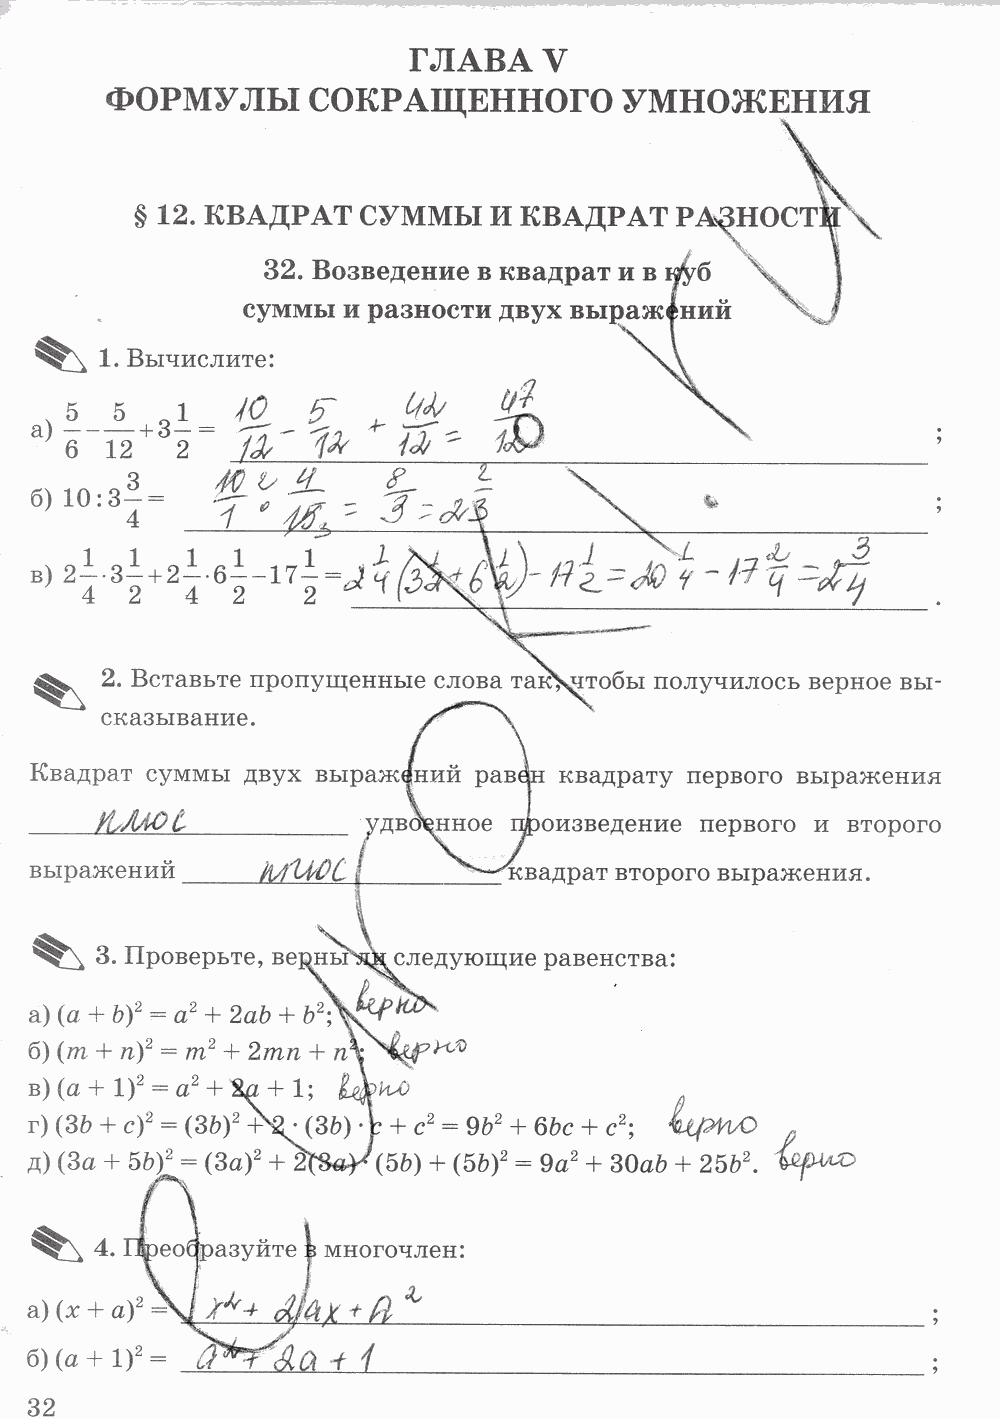 ГЛАВА V
ФОРМУЛЫ СОКРАЩЕННОГО УМНОЖЕНИЯ
§ 12. КВАДРАТ СУММЫ И КВАДРАТ РАЗНОСТИ
32. Возведение в квадрат и в куб
суммы и разности двух выражений
1. Вычислите:
а) 5/6 − 5/12 + 3 1/2 = 10/12 − 5/12 + 42/12 = 47/12 ;
б) 10 : 3 3/4 = 10/1 · 4/15 = 8/3 = 2 2/3 ;
в) 2 1/4 · 3 1/2 + 2 1/4 · 6 1/2 − 17 1/2 = 2 1/4 (3 1/2 + 6 1/2) − 17 1/2 = 20 1/4 − 17 2/4 = 2 3/4 .
2. Вставьте пропущенные слова так, чтобы получилось верное вы-
сказывание.
Квадрат суммы двух выражений равен квадрату первого выражения
плюс удвоенное произведение первого и второго
выражений плюс квадрат второго выражения.
3. Проверьте, верны ли следующие равенства:
а) (a + b)² = a² + 2ab + b²; верно
б) (m + n)² = m² + 2mn + n²; верно
в) (a + 1)² = a² + 2a + 1; верно
г) (3b + c)² = (3b)² + 2 · (3b) · c + c² = 9b² + 6bc + c²; верно
д) (3a + 5b)² = (3a)² + 2(3a) · (5b) + (5b)² = 9a² + 30ab + 25b². верно
4. Преобразуйте в многочлен:
а) (x + a)² = x² + 2ax + a² ;
б) (a + 1)² = a² + 2a + 1 ;
32